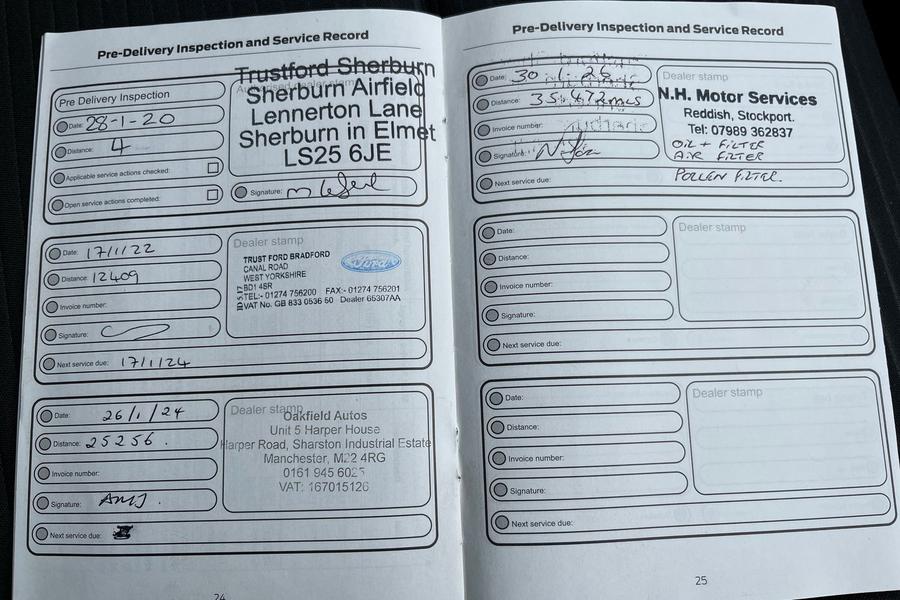 Pre-Delivery Inspection and Service Record
Pre Delivery Inspection
Date: 28-1-20
Distance: 4
Applicable service actions checked:
Open service actions completed:
Trustford Sherburn
Sherburn Airfield
Lennerton Lane
Sherburn in Elmet
LS25 6JE
Signature:
Date: 17/1/22
Distance: 12409
Invoice number:
Signature:
Next service due: 17/1/24
Dealer stamp
TRUST FORD BRADFORD
CANAL ROAD
WEST YORKSHIRE
BD1 4SR
TEL:- 01274 756200 FAX:- 01274 756201
VAT No. GB 833 0536 50 Dealer 65307AA
Ford
Date: 26/1/24
Distance: 25256.
Invoice number:
Signature:
Next service due:
Dealer stamp
Oakfield Autos
Unit 5 Harper House
Harper Road, Sharston Industrial Estate
Manchester, M22 4RG
0161 945
VAT: 167015126
24
Pre-Delivery Inspection and Service Record
Date: 30
Distance:
Invoice number:
Signature:
Next service due:
Dealer stamp
N.H. Motor Services
Reddish, Stockport.
Tel: 07989 362837
OIL + FILTER
AIR FILTER
POLLEN FILTER.
Date:
Distance:
Invoice number:
Signature:
Next service due:
Dealer stamp
Date:
Distance:
Invoice number:
Signature:
Next service due:
Dealer stamp
25